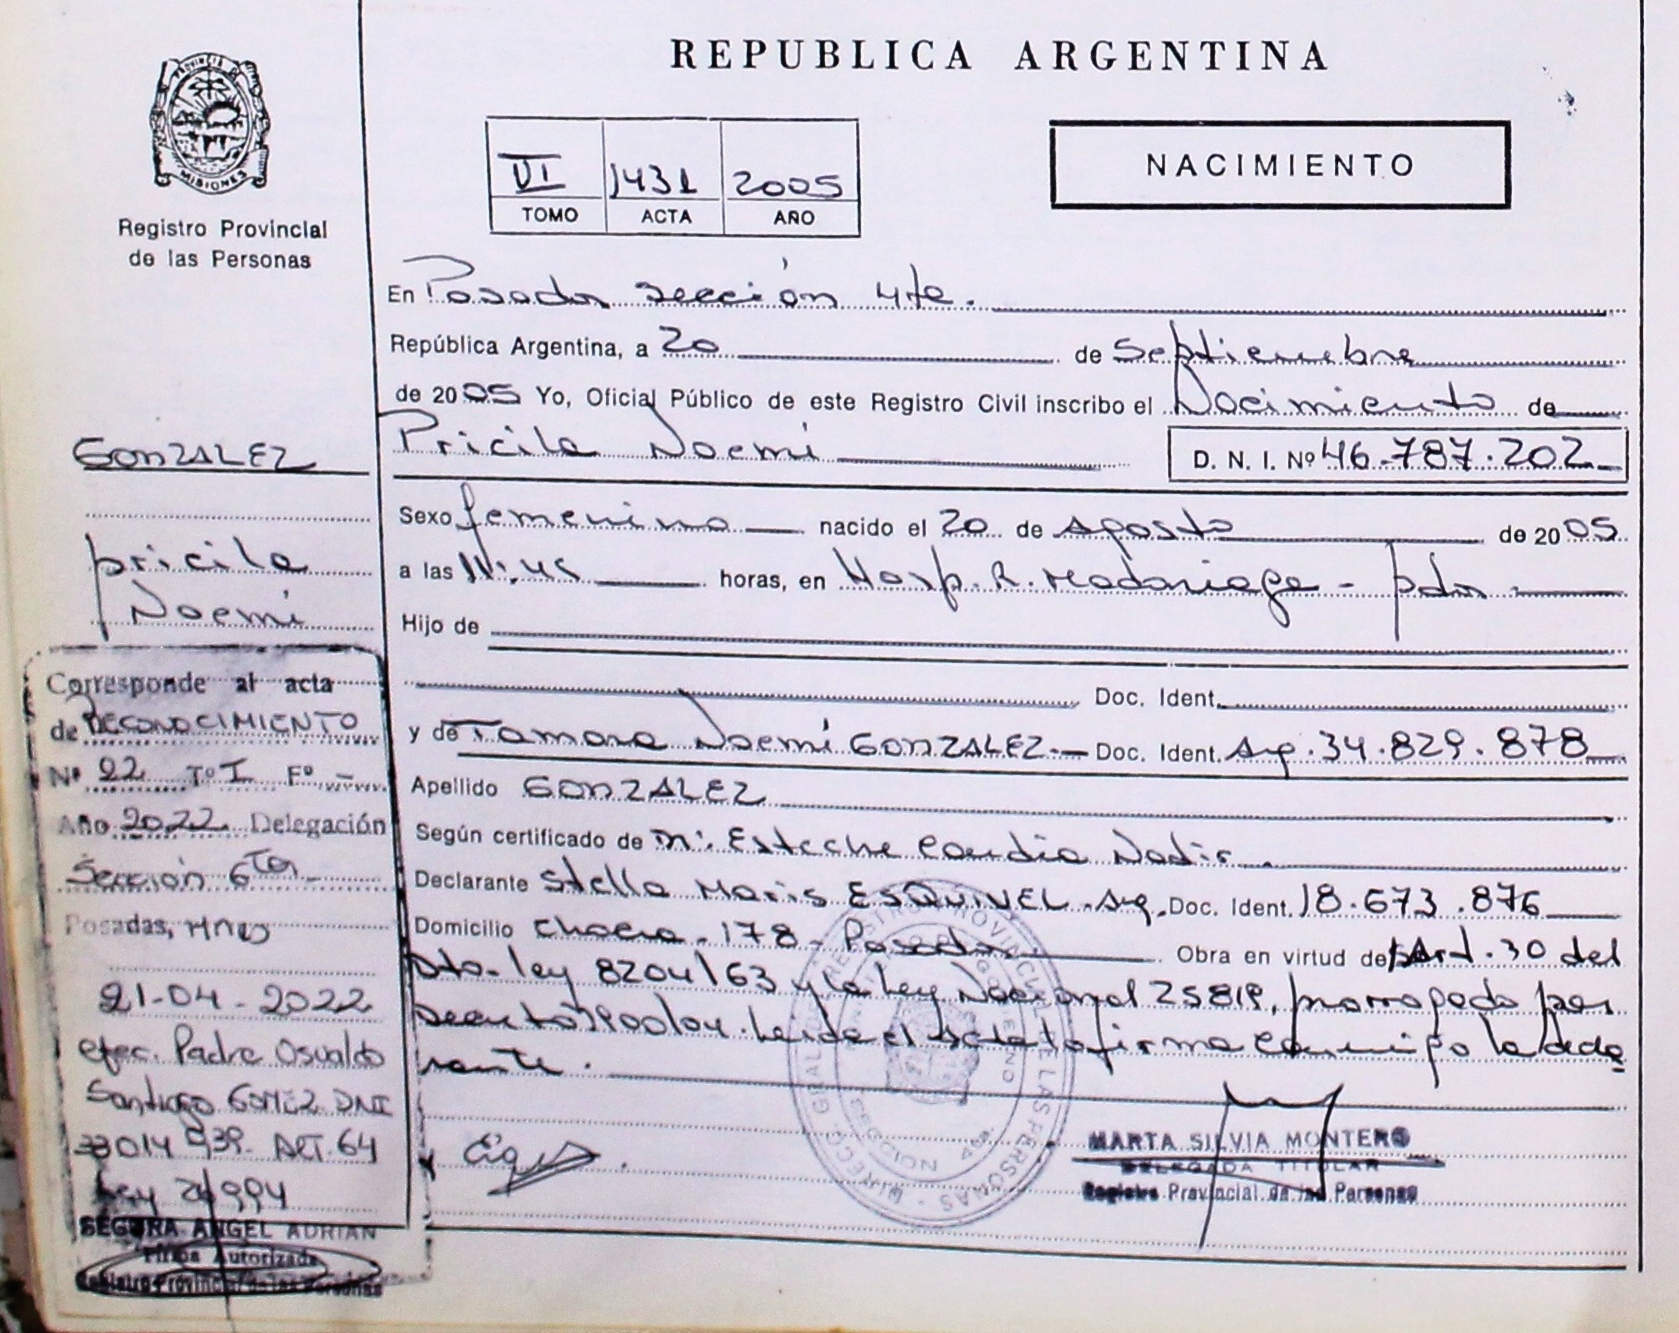 REPUBLICA ARGENTINA
PROVINCIA DE
MISIONES
Registro Provincial
de las Personas
VI 1431 2005
TOMO ACTA AÑO
NACIMIENTO
En Posadas sección 4ta.
República Argentina, a 20 de Septiembre
de 2005 Yo, Oficial Público de este Registro Civil inscribo el Nacimiento de
Pricila Noemi D. N. I. Nº 46.787.202
Sexo femenino nacido el 20 de Agosto de 2005
a las 11:45 horas, en Hosp. R. Madariaga - pdas
Hijo de
Doc. Ident.
y de Tamara Noemi GONZALEZ.- Doc. Ident. Arg. 34.829.878
Apellido GONZALEZ
Según certificado de Esteche Claudia Nadir.
Declarante Stella Maris ESQUIVEL. Arg. Doc. Ident. 18.673.876
Domicilio 178 - Posadas Obra en virtud de Art. 30 del
Dto-ley 8204/63 y la Ley Nacional 25819, prorrogado por
Decreto 1900/04. Leida el acta la firma conmigo la decla
rante.
MARTA SILVIA MONTERO
DELEGADA TITULAR
Registro Provincial de las Personas
GONZALEZ
pricila
Noemi
Corresponde al acta
de RECONOCIMIENTO
Nº 22 Tº I Fº -
Año 2022 Delegación
Sección 6ta
Posadas, Mnes
21-04-2022
efec. Padre Osvaldo
Santiago GOMEZ DNI
33014939. ART. 64
Ley 26994
SEGURA ANGEL ADRIAN
Firma Autorizada
Registro Provincial de las Personas